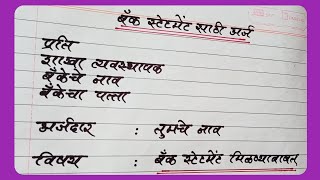 बँक स्टेटमेंट साठी अर्ज
प्रति
शाखा व्यवस्थापक
बँकेचे नाव
बँकेचा पत्ता
अर्जदार : तुमचे नाव
विषय : बँक स्टेटमेंट मिळण्याबाबत